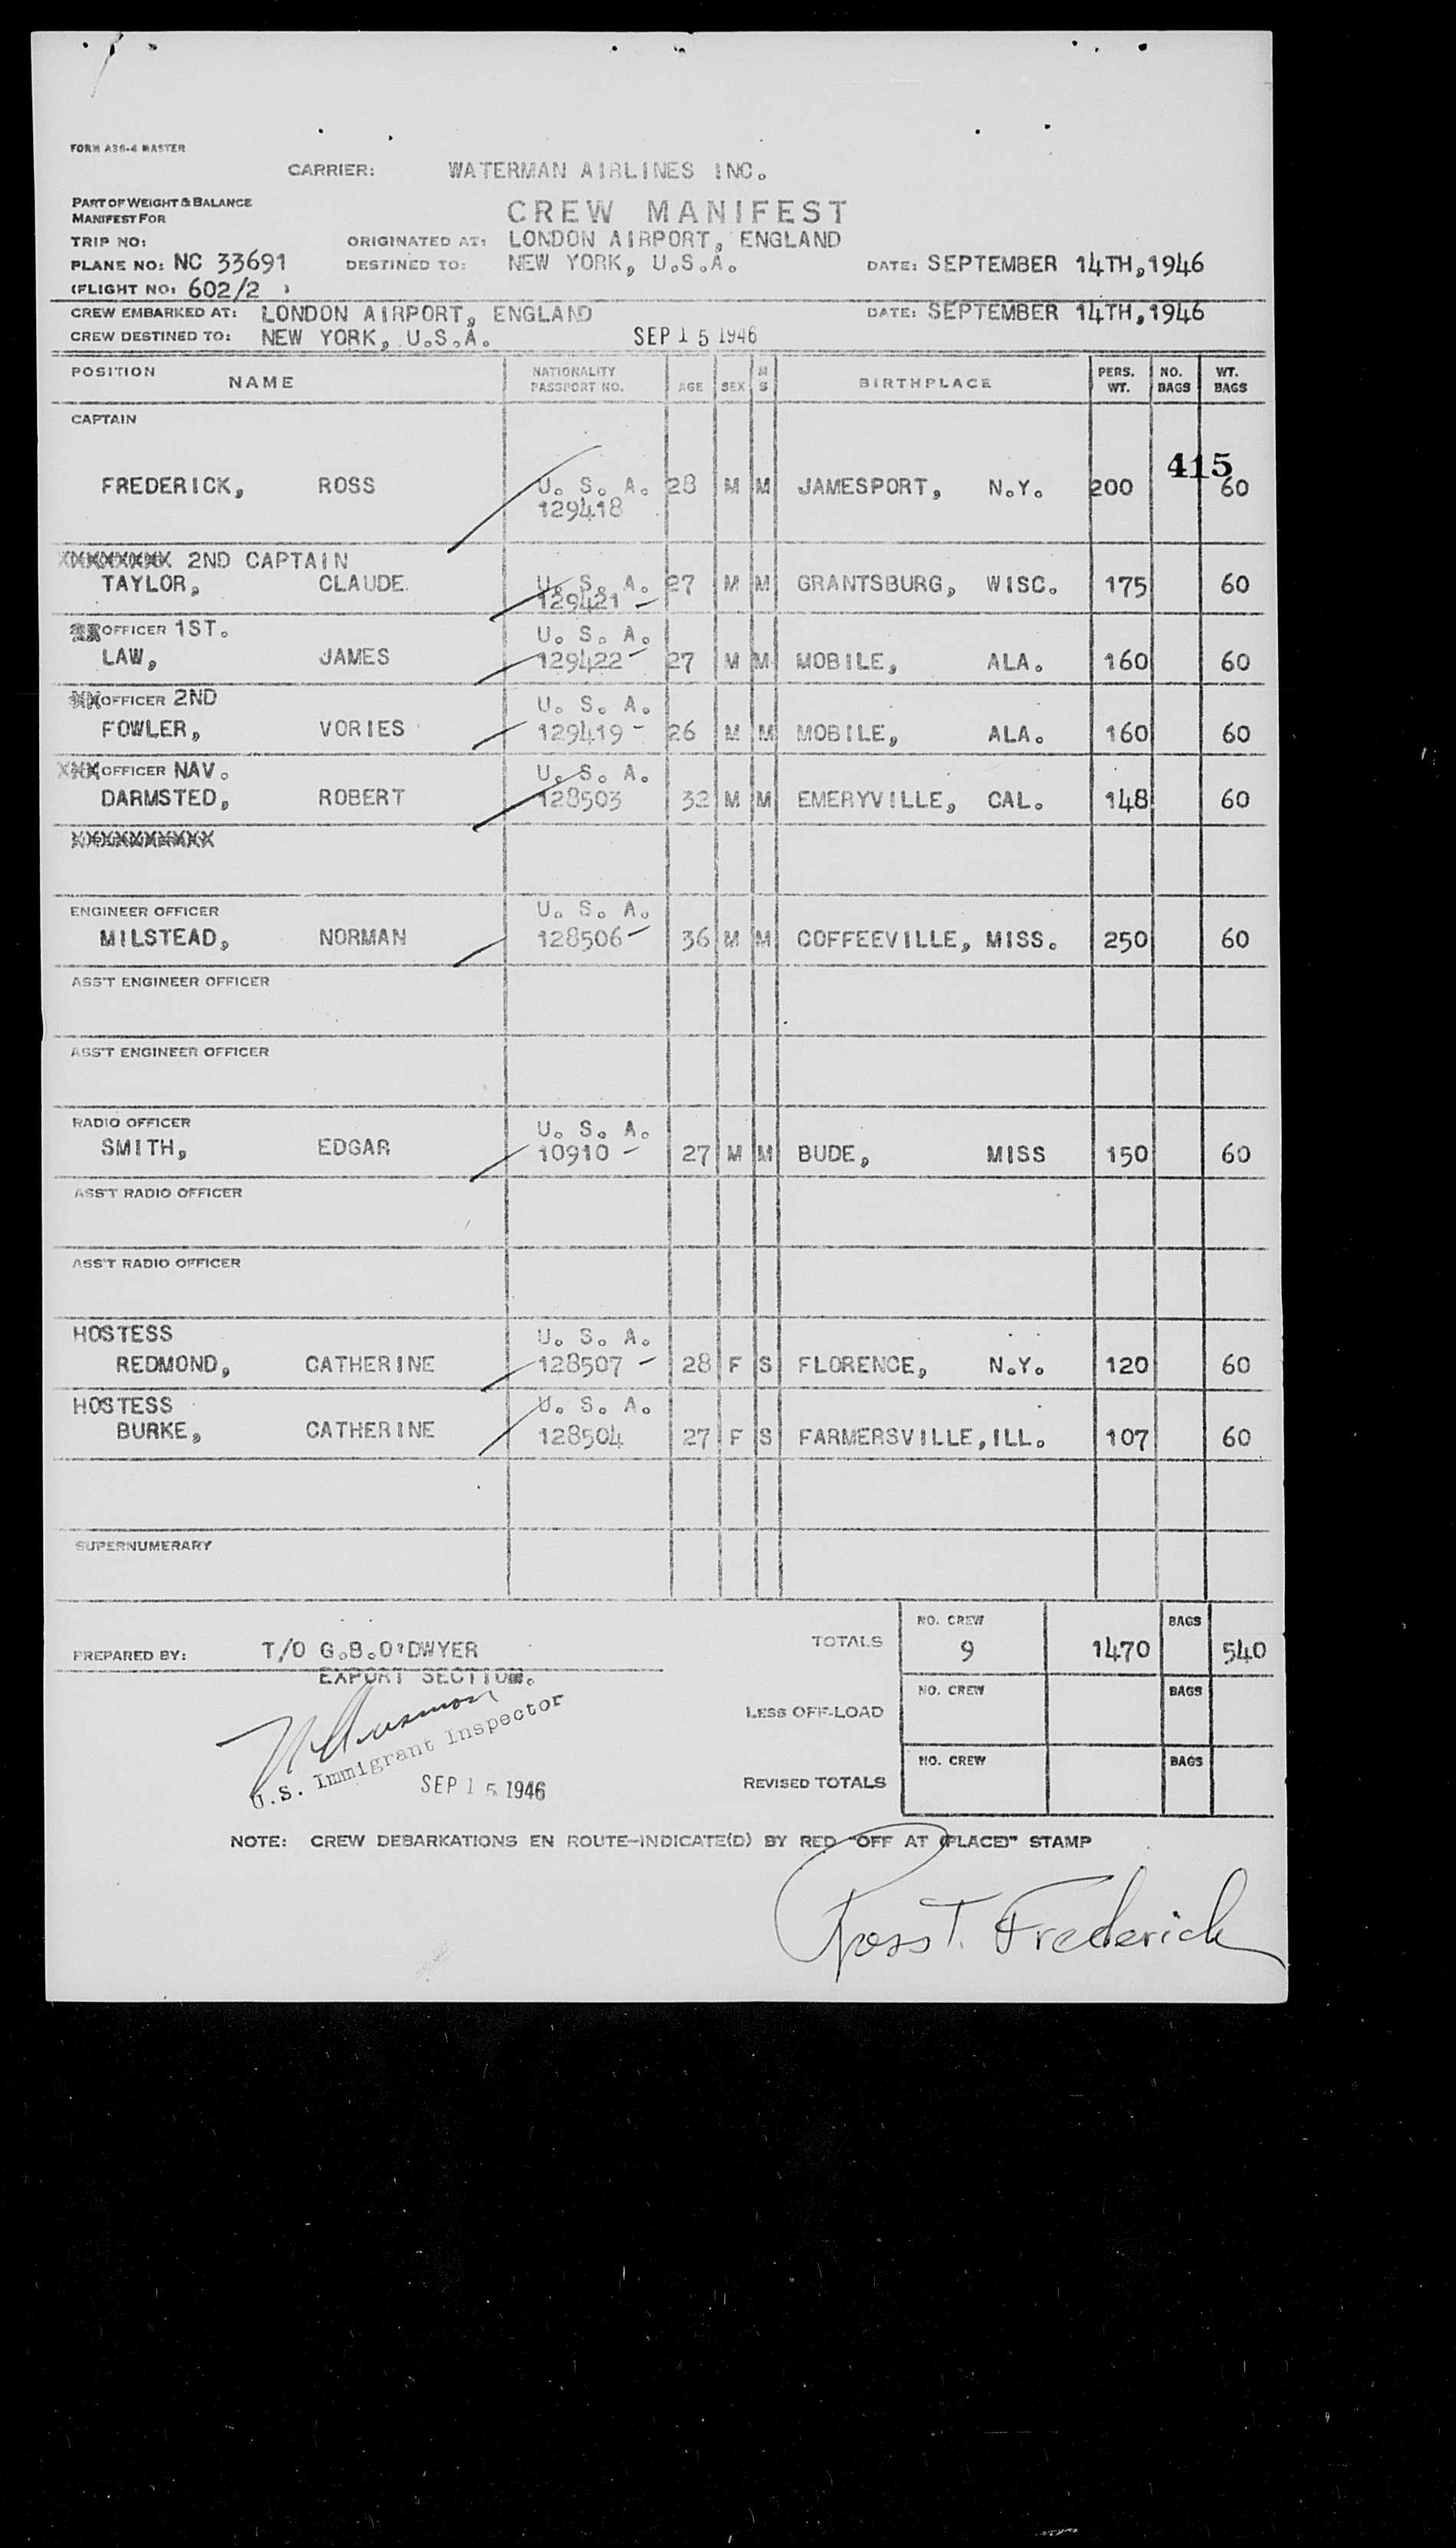 FORM A36-4 MASTER
CARRIER: WATERMAN AIRLINES INC.
PART OF WEIGHT & BALANCE
MANIFEST FOR
CREW MANIFEST
TRIP NO: ORIGINATED AT: LONDON AIRPORT, ENGLAND
PLANE NO: NC 33691 DESTINED TO: NEW YORK, U.S.A. DATE: SEPTEMBER 14TH, 1946
(FLIGHT NO: 602/2 )
CREW EMBARKED AT: LONDON AIRPORT, ENGLAND DATE: SEPTEMBER 14TH, 1946
CREW DESTINED TO: NEW YORK, U.S.A. SEP 15 1946
POSITION NAME NATIONALITY PASSPORT NO. AGE SEX M S BIRTHPLACE PERS. WT. NO. BAGS WT. BAGS
CAPTAIN
415
FREDERICK, ROSS U. S. A. 28 M M JAMESPORT, N.Y. 200 60
129418
2ND CAPTAIN
TAYLOR, CLAUDE. U. S. A. 27 M M GRANTSBURG, WISC. 175 60
129421
OFFICER 1ST. U. S. A.
LAW, JAMES 129422 27 M M MOBILE, ALA. 160 60
OFFICER 2ND U. S. A.
FOWLER, VORIES 129419 26 M M MOBILE, ALA. 160 60
OFFICER NAV. U. S. A.
DARMSTED, ROBERT 128503 32 M M EMERYVILLE, CAL. 148 60
ENGINEER OFFICER U. S. A.
MILSTEAD, NORMAN 128506 36 M M COFFEEVILLE, MISS. 250 60
ASS'T ENGINEER OFFICER
ASS'T ENGINEER OFFICER
RADIO OFFICER U. S. A.
SMITH, EDGAR 10910 27 M M BUDE, MISS 150 60
ASS'T RADIO OFFICER
ASS'T RADIO OFFICER
HOSTESS U. S. A.
REDMOND, CATHERINE 128507 28 F S FLORENCE, N.Y. 120 60
HOSTESS U. S. A.
BURKE, CATHERINE 128504 27 F S FARMERSVILLE, ILL. 107 60
SUPERNUMERARY
NO. CREW BAGS
PREPARED BY: T/O G.B.O'DWYER TOTALS 9 1470 540
EXPORT SECTION.
NO. CREW BAGS
LESS OFF-LOAD
U.S. Immigrant Inspector
NO. CREW BAGS
SEP 15 1946 REVISED TOTALS
NOTE: CREW DEBARKATIONS EN ROUTE—INDICATE(D) BY RED "OFF AT (PLACE)" STAMP
Ross T. Frederick